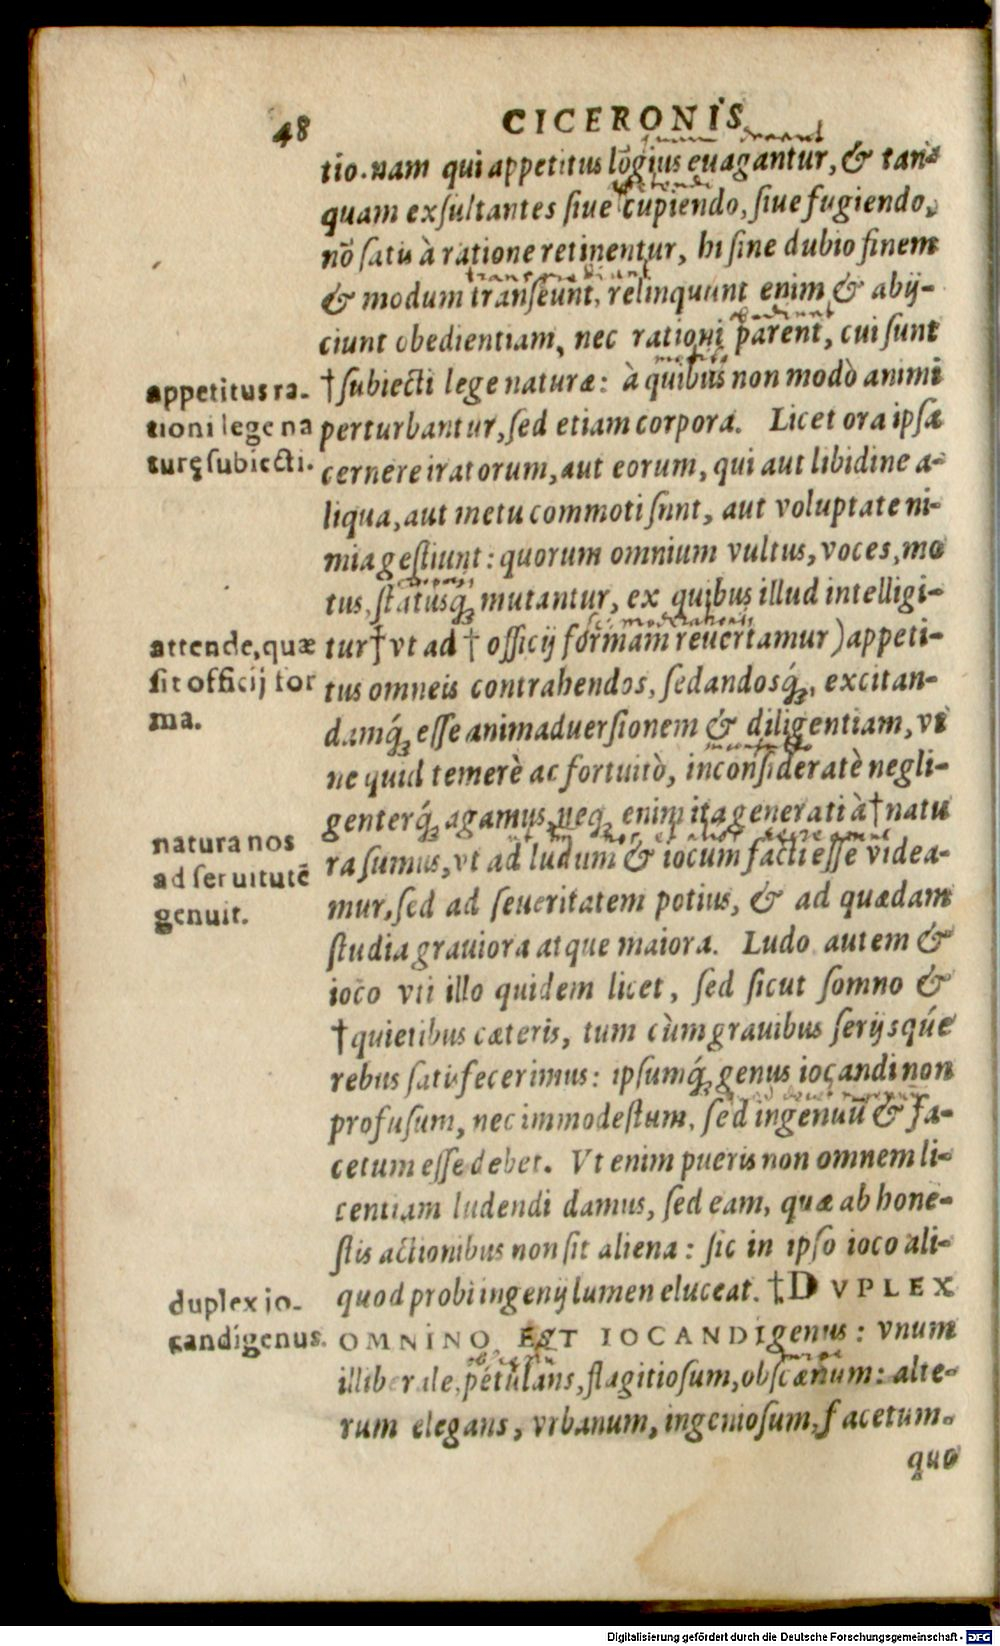 48
CICERONIS
tio. nam qui appetitus lõgius euagantur, & tan-
quam exſultantes ſiue cupiendo, ſiue fugiendo,
nõ ſatis à ratione retinentur, hi ſine dubio finem
& modum tranſeunt, relinquunt enim & abij-
ciunt obedientiam, nec rationi parent, cui ſunt
†ſubiecti lege naturæ: à quibus non modò animi
perturbantur, ſed etiam corpora. Licet ora ipſa
cernere iratorum, aut eorum, qui aut libidine a-
liqua, aut metu commoti ſnnt, aut voluptate ni-
mia geſtiunt: quorum omnium vultus, voces, mo
tus, ſtatusq́ mutantur, ex quibus illud intelligi-
tur† vt ad † officij formam reuertamur) appeti-
tus omneis contrahendos, ſedandosq́, excitan-
damq́ eſſe animaduerſionem & diligentiam, vt
ne quid temerè ac fortuitò, inconſideratè negli-
genterq́ agamus, neq enim ita generati à †natu
ra ſumus, vt ad ludum & iocum facti eſſe videa-
mur, ſed ad ſeueritatem potius, & ad quædam
ſtudia grauiora atque maiora. Ludo autem &
ioco vti illo quidem licet, ſed ſicut ſomno &
†quietibus cæteris, tum cùm grauibus ſerijsqúe
rebus ſatisfecerimus: ipſumq́ genus iocandi non
profuſum, nec immodeſtum, ſed ingenuũ & fa-
cetum eſſe debet. Vt enim pueris non omnem li-
centiam ludendi damus, ſed eam, quæ ab hone-
ſtis actionibus non ſit aliena: ſic in ipſo ioco ali-
quod probi ingenij lumen eluceat. †DVPLEX
OMNINO EST IOCANDI genus: vnum
illiberale, petulans, flagitioſum, obſcænum: alte-
rum elegans, vrbanum, ingenioſum, facetum.
quo
appetitus ra-
tioni lege na
turę ſubiecti.
attende, quæ
ſit officij for
ma.
natura nos
ad ſeruitutẽ
genuit.
duplex io-
candi genus.
obscenum
Digitalisierung gefördert durch die Deutsche Forschungsgemeinschaft - DFG